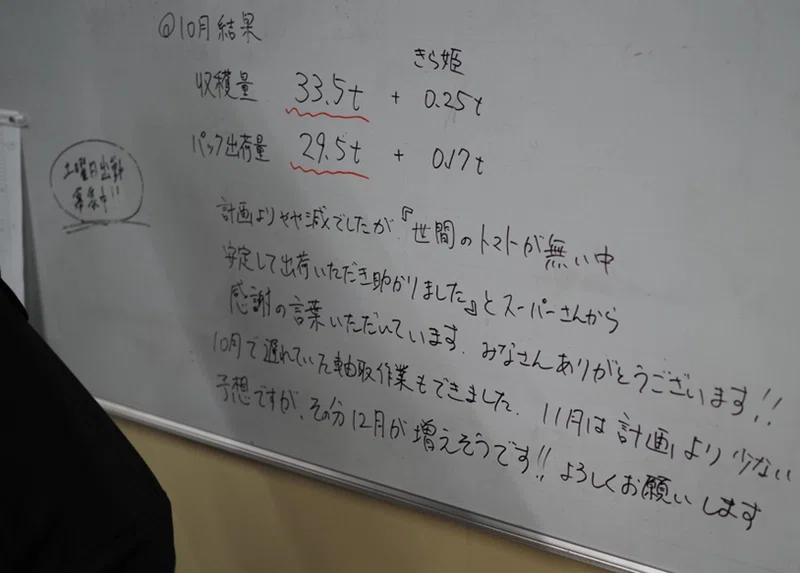 ◎10月結果
きら姫
収穫量 33.5t + 0.25t
パック出荷量 29.5t + 0.17t
土曜日出勤
募集中!!
計画よりやや減でしたが『世間のトマトが無い中
安定して出荷いただき助かりました』とスーパーさんから
感謝の言葉いただいています. みなさんありがとうございます!!
10月で遅れていた軸取作業もできました. 11月は計画より少ない
予想ですが、その分12月が増えそうです!! よろしくお願いします